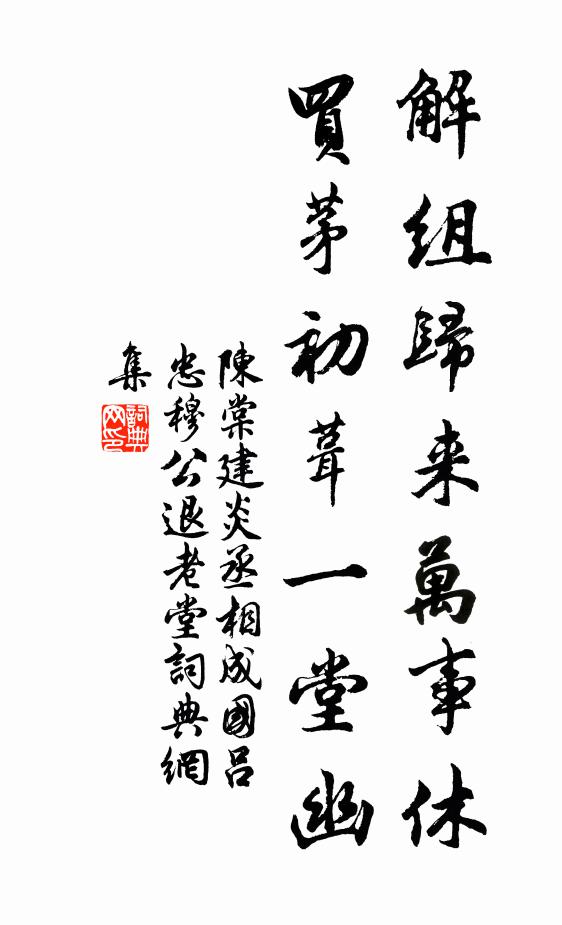 解組歸来萬事休
買茅初葺一堂幽
陳棠建炎丞相成國呂
忠穆公退老堂詞典網
集
詞典网印